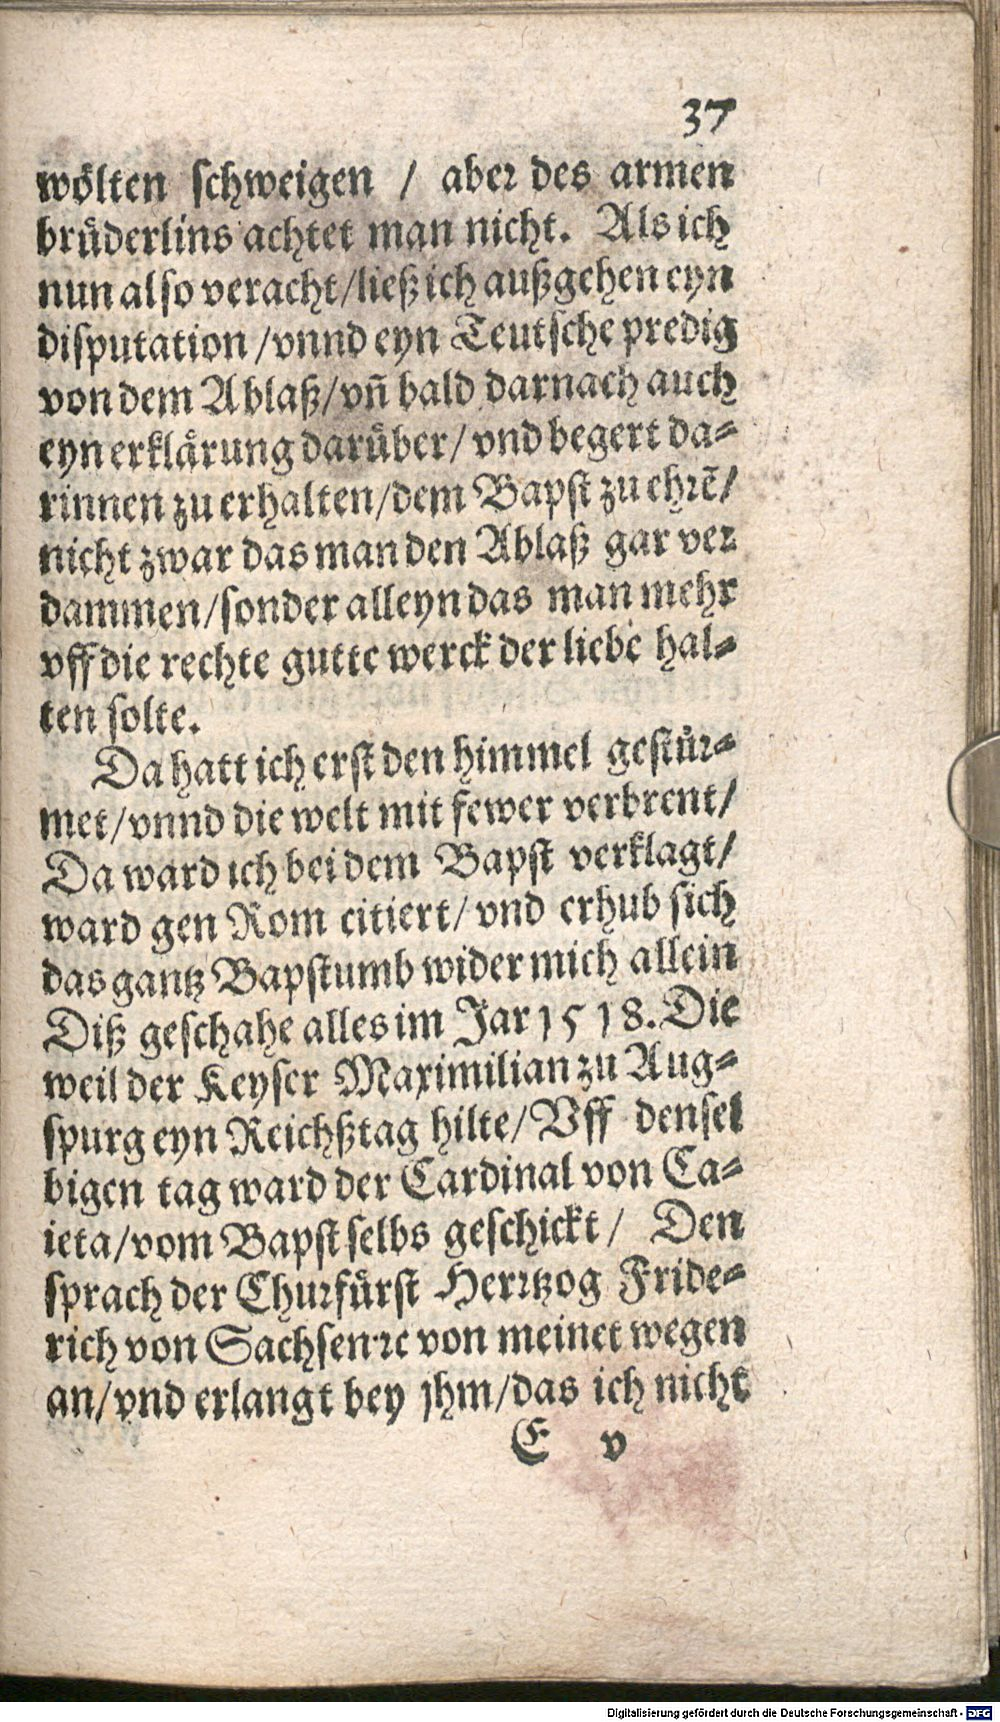 37
wölten schweigen / aber des armen
brüderlins achtet man nicht. Als ich
nun also veracht/ließ ich außgehen eyn
disputation /vnnd eyn Teutsche predig
von dem Ablaß/vn̄ bald darnach auch
eyn erklärung darüber/ vnd begert da⸗
rinnen zu erhalten/dem Bapst zu ehrē/
nicht zwar das man den Ablaß gar ver
dammen/sonder alleyn das man mehr
vff die rechte gutte werck der liebe hal⸗
ten solte.
Da hatt ich erst den himmel gestür⸗
met/vnnd die welt mit fewer verbrent/
Da ward ich bei dem Bapst verklagt/
ward gen Rom citiert/ vnd erhub sich
das gantz Bapstumb wider mich allein
Diß geschahe alles im Jar 1518. Die
weil der Keyser Maximilian zu Aug⸗
spurg eyn Reichßtag hilte/Vff densel
bigen tag ward der Cardinal von Ca⸗
ieta/vom Bapst selbs geschickt / Den
sprach der Churfürst Herrtzog Fride⸗
rich von Sachsen ꝛc von meinet wegen
an/vnd erlangt bey jhm/das ich nicht
E v
Digitalisierung gefördert durch die Deutsche Forschungsgemeinschaft - DFG